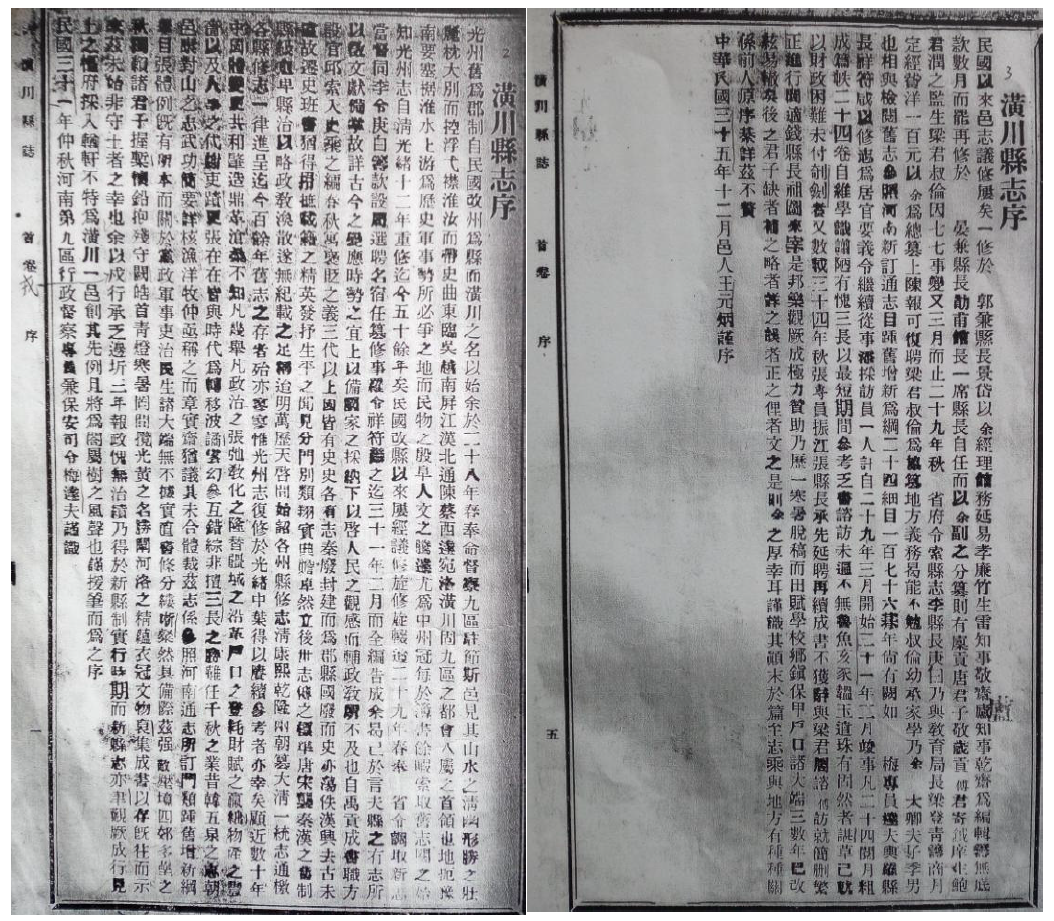 2
潢川縣志序
光州舊爲郡制自民國改州爲縣而潢川之名以始余於二十八年春奉命督察九區駐節斯邑見其山水之淸幽形勝之壯
麗枕大別而控浮弋襟淮汝而帶史曲東臨吳越南屏江漢北通陳蔡西達宛洛潢川固九區之都會八屬之首領也地扼豫
南要塞據淮水上游爲歷史軍事勢所必爭之地而民物之殷阜人文之騰達尤爲中州冠每於簿書餘暇索取舊志閱之
知光州志自淸光緒十二年重修迄今五十餘年矣民國改縣以來屢經議修旋修旋輟迨二十九年春奉 省令調取新志
當督同李令庚白籌款設局選聘名宿任纂修事羅令祥符繼之迄三十一年二月而全編告成余曷已於言夫縣之有志所
以徵文獻備掌故詳古今之變應時勢之宜上以備國家之採納下以啓人民之觀感而輔政敎所不及也自禹貢成書職方
設官邱索入史乘之編春秋寓褒貶之義三代以上國皆有史史各有志秦廢封建而爲郡縣國廢而史亦蕩佚漢興去古未
遠故遷史班書猶得搜摭載籍之精英發抒生平之聞見分門別類翔實典贍卓然立後世志傳之楷模唐宋襲秦漢之舊制
縣級愈卑縣治以略政敎渙散遂無紀載之足稱迨明萬歷天啓間始詔各州縣修志淸康熙乾隆兩朝纂大淸一統志通檄
各縣修志一律進呈迄今百餘年舊志之存者殆亦寥寥惟光州志復修於光緒中葉得以賡續參考者亦幸矣顧近數十年
中國體變更共和肇造鼎革滄桑不知凡幾舉凡政治之張弛敎化之隆替疆域之沿革戶口之登耗財賦之贏絀物產之豐
嗇以及人事之代謝吏路更張在在皆與時代爲轉移波譎雲幻參互錯綜非擅三長之勝難任千秋之業昔韓五泉之志朝
邑康對山之志武功簡要詳核漁洋牧仲亟稱之而章實齋猶議其未合體裁茲志係參照河南通志所訂門類踵舊增新綱
舉目張體例旣有所本而關於黨政軍事吏治民生諸大端無不據實直書條分縷晰粲然具備際茲强敵壓境四郊多壘之
秋獨賴諸君子握槧懷鉛抱殘守闕皓首靑燈寒暑罔間攬光黃之名勝闡河洛之精蘊衣冠文物裒集成書以存旣往而示
來茲未始非守土者之幸也余以戎行承乏邊圻二年報政愧無治績乃得於新縣制實行時期而新縣志亦聿觀厥成行見
上之憲府採入輶軒不特爲潢川一邑創其先例且將爲闔屬樹之風聲也謹援筆而爲之序
民國三十一年仲秋河南第九區行政督察專員兼保安司令梅達夫謹識
潢川縣誌 首卷 序 一
3
潢川縣志序
民國以來邑志議修屢矣一修於 郭兼縣長景岱以余經理館務延易孝廉竹生雷知事敬齋盛知事乾齋爲編輯鬱無底
款數月而罷再修於 晏兼縣長勛甫館長一席縣長自任而以余副之分纂則有廩貢唐君子敬歲貢傅君寄 庠生鮑
君潤之監生梁君叔倫因七七事變又三月而止二十九年秋 省府令索縣志李縣長庚白乃與敎育局長梁登靑籌商月
定經費洋一百元以余爲總纂上陳報可復聘梁君叔倫爲協纂地方義務曷能不勉叔倫幼承家學乃余 太卿夫好季男
也相與檢閱舊志參照河南新訂通志目踵舊增新爲綱二十四細目一百七十六 年尙有闕如 梅專員達夫與羅縣
長祥符咸以修志爲居官要義令繼續從事添採訪員一人計自二十九年三月開始三十一年二月竣事凡二十四閱月粗
成篇帙二十四卷自維學識譾陋有愧三長以最短期間參考乏書諮訪未逼不無魯魚亥豕韞玉遺珠有固然者諶草已就
以財政困難未付剞劂者又數載三十四年秋張專員振江張縣長承先延聘再續成書不獲辭與梁君周諮博訪就簡刪繁
正進行間適錢縣長祖 來宰是邦樂觀厥成極力贊助乃歷一寒暑脫稿而田賦學校鄉鎭保甲戶口諸大端三數年已改
絃易轍矣後之君子缺者補之略者詳之誤者正之俚者文之是則余之厚幸耳謹識其顚末於篇至志乘與地方有種種關
係前人原序綦詳茲不贅
中華民國三十五年十二月邑人王元炳謹序
潢川縣誌 首卷 序 五